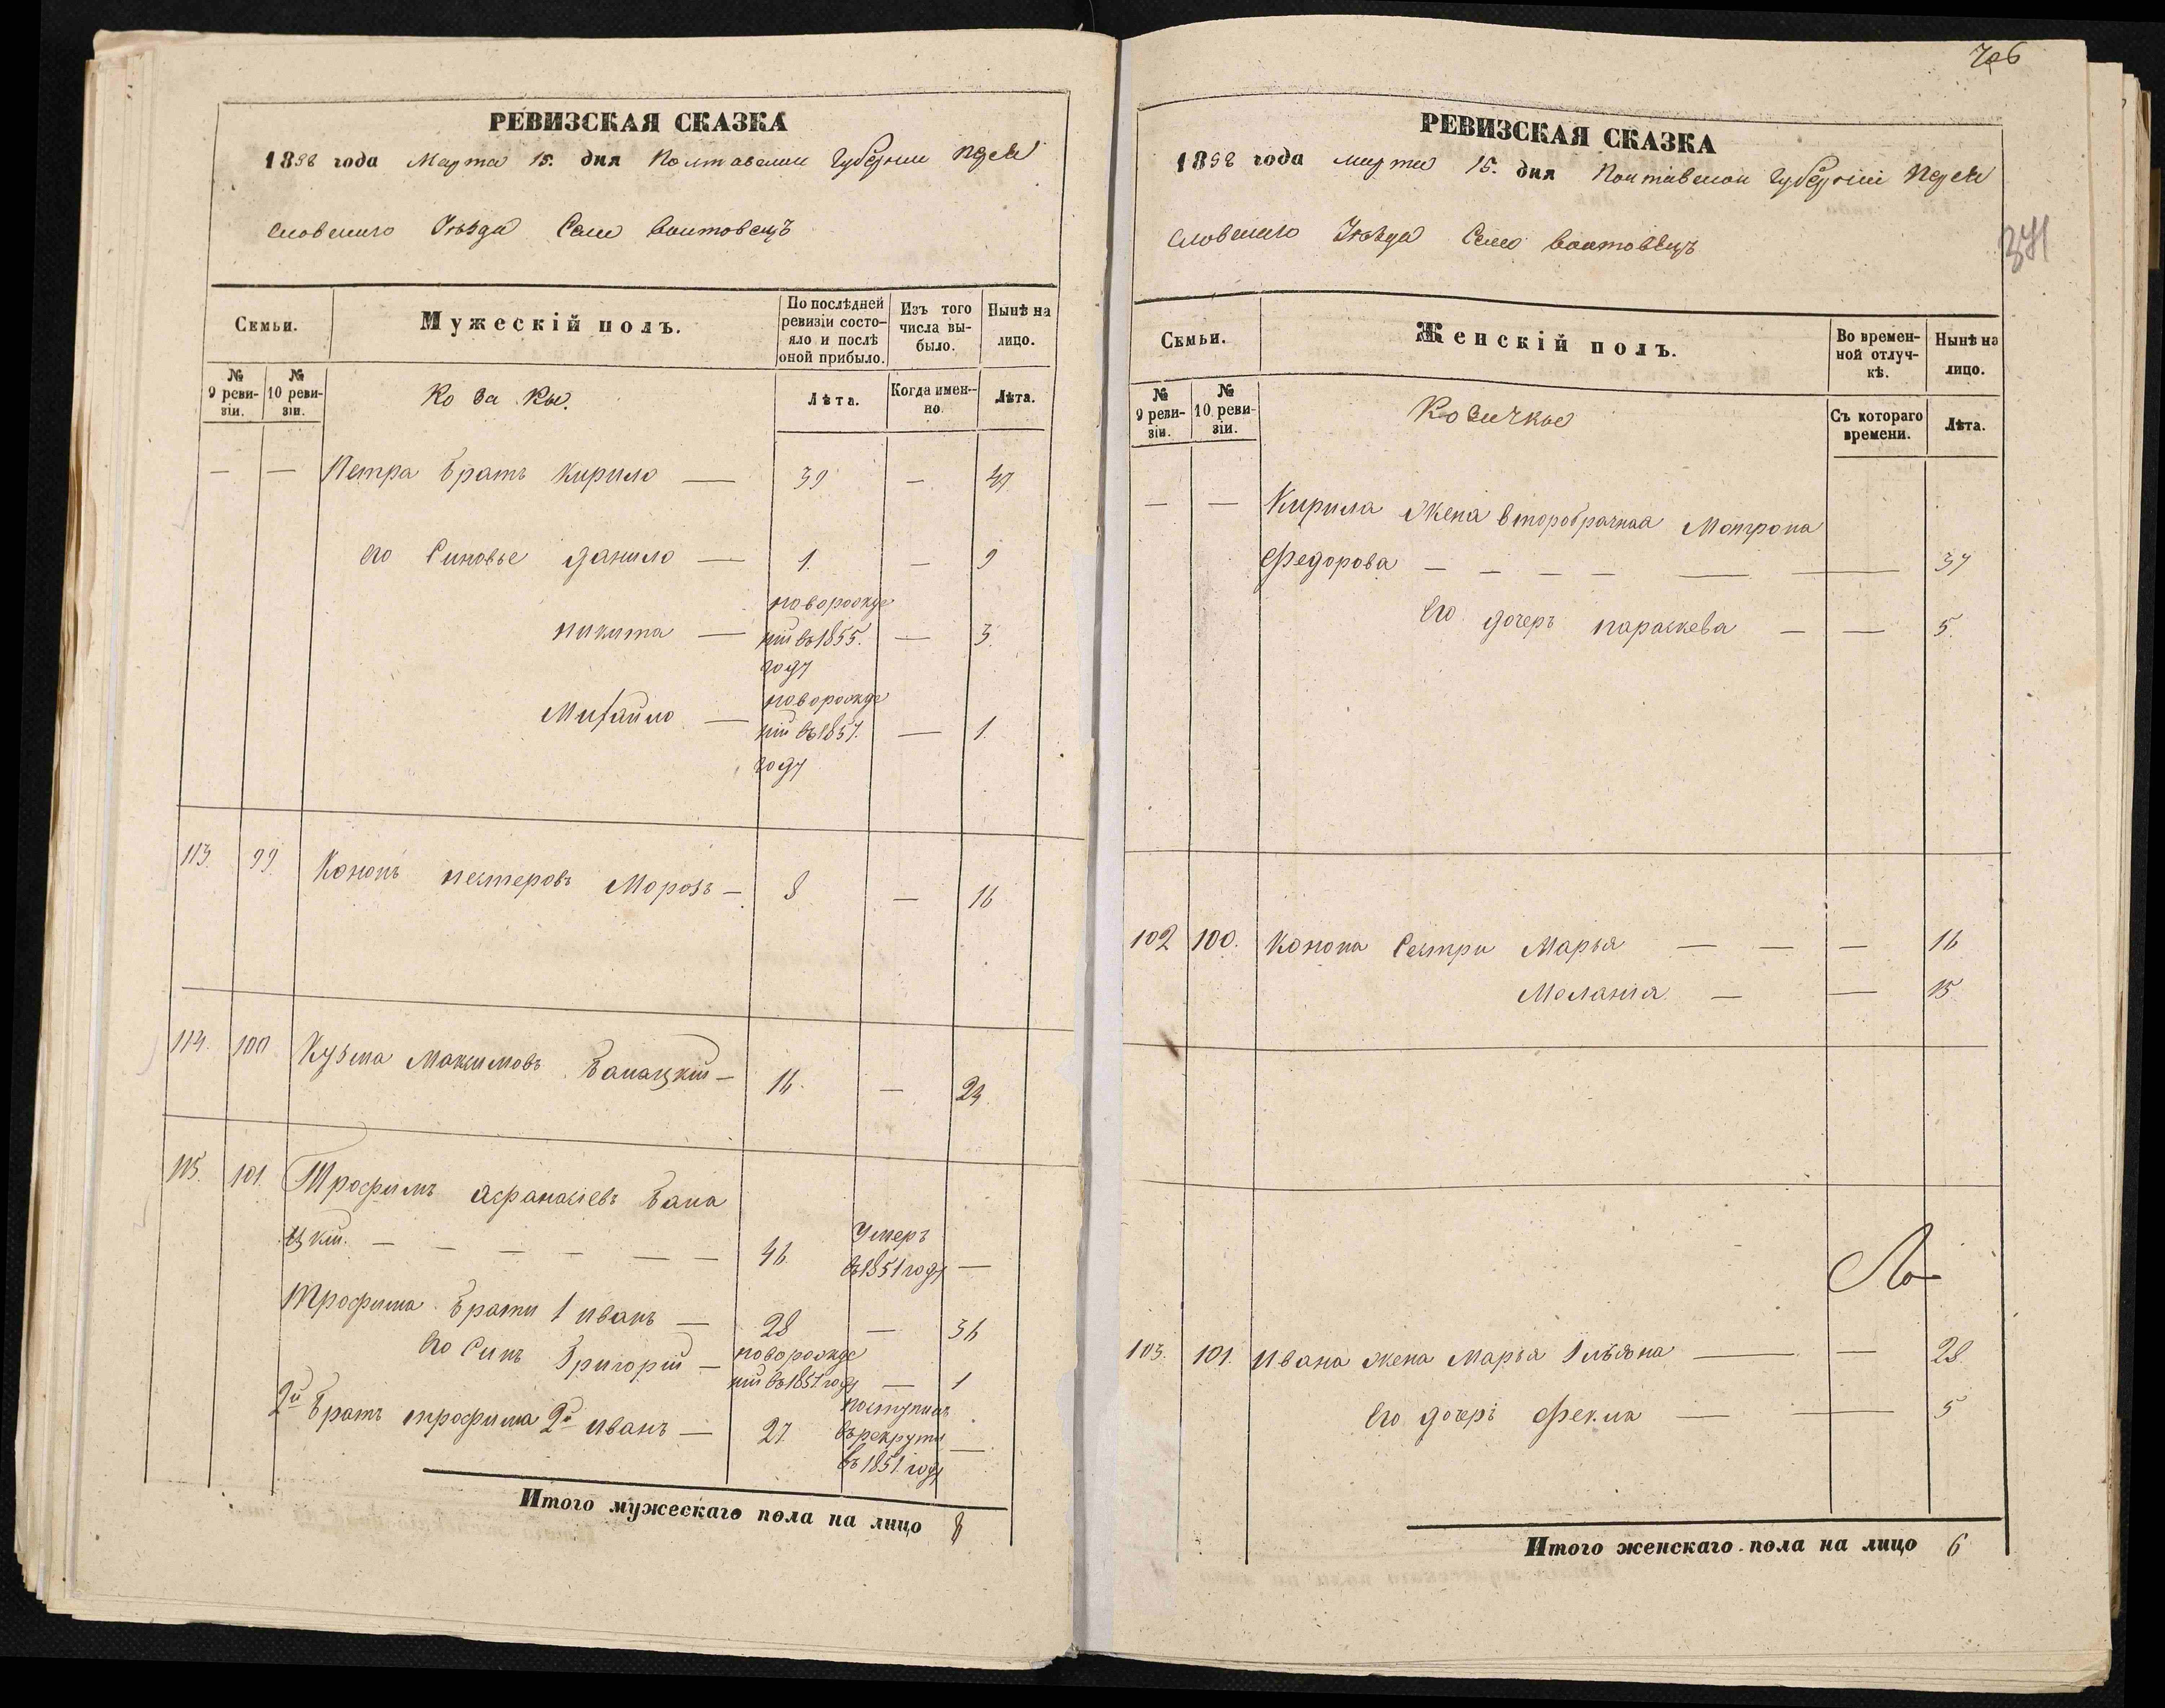 РЕВИЗСКАЯ СКАЗКА
1858 года Марта 15. дня Полтавской Губернии Перея
словского Уѣзда Села Воитовецъ
Семьи.
Мужескій полъ.
По послѣдней ревизіи состо-
яло и послѣ оной прибыло.
Изъ того числа вы-
было.
Нынѣ на лицо.
№ 9 реви-
зіи.
№ 10 реви-
зіи.
Ко за кы.
Лѣта.
Когда имен-
но.
Лѣта.
— — Петра братъ Кирило — 39 — 47
его Синовье Данило — 1. — 9
Никита — новорожде
ній въ 1855. — 3.
году
Михайло — новорожде
ній въ 1857. — 1.
году
113. 99. Кононъ нестеровъ Морозъ — 8 — 16
114. 100 Кузма Максимовъ Банацкій — 16. — 24.
115. 101. Трофимъ Афанасіевъ Бана
цкій. — — — — — — 46. Умеръ
въ 1851 году —
Трофима брати 1 иванъ — 28 — 36
его Синъ Григорій — новорожде
ній въ 1857 году — 1
2й братъ трофима 2й иванъ — 27. поступилъ
въ рекруты —
въ 1851. году
Итого мужескаго пола на лицо 8
706
371
РЕВИЗСКАЯ СКАЗКА
1858 года марта 15. дня Полтавской Губерніи Перея
словского Уѣзда Село Воитовецъ
Семьи.
Женскій полъ.
Во времен-
ной отлуч-
кѣ.
Нынѣ на лицо.
№ 9 реви-
зіи.
№ 10 реви-
зіи.
Козачкы
Съ котораго времени.
Лѣта.
— — Кирила Жена второбрачная Мотрона
Федорова — — — — — — 37
Его дочеръ параскева — — 5.
102 100. Конона Сестри Марья — — — 16
Меланія — — 15
103. 101. Ивана жена Марья Ильіна — — 28.
Его дочеръ Фекла — — 5
Итого женскаго пола на лицо 6